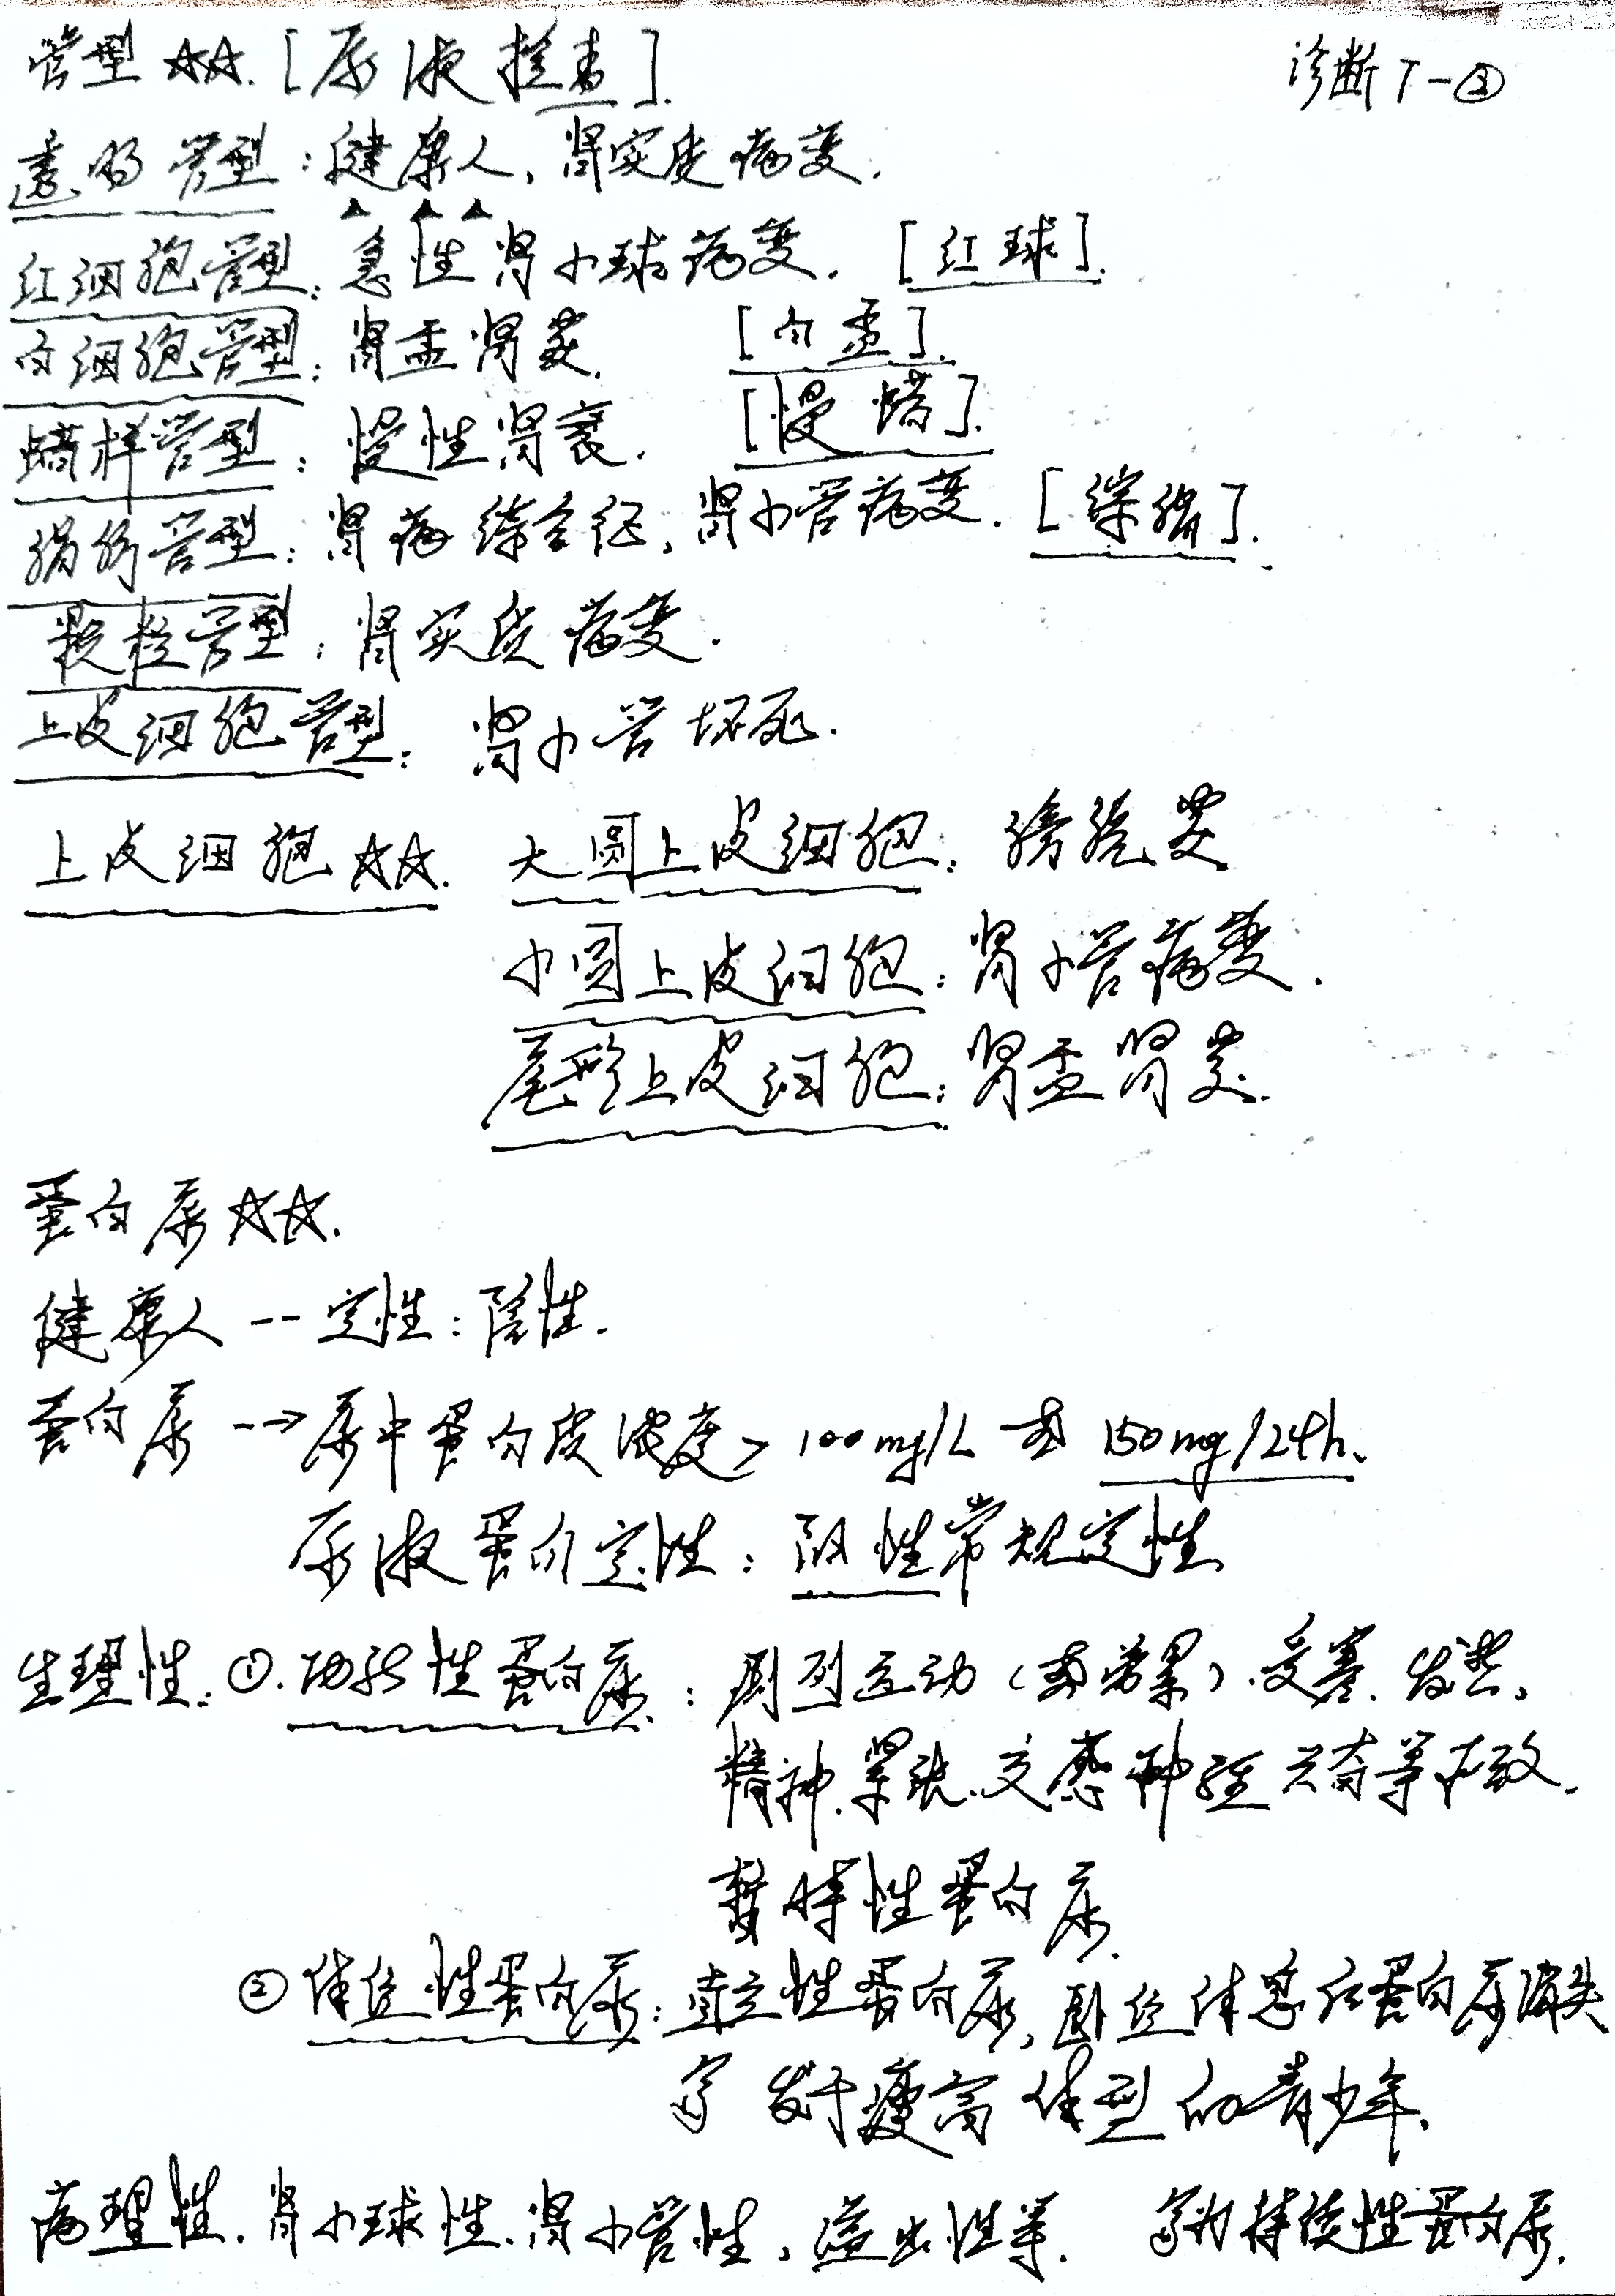 管型☆☆. [尿液检查].
诊断下-②
透明管型：健康人、肾实质病变.
红细胞管型：急性肾小球病变. [红球].
白细胞管型：肾盂肾炎. [白盂].
蜡样管型：慢性肾衰. [慢蜡].
脂肪管型：肾病综合征、肾小管病变. [综脂].
颗粒管型：肾实质病变.
上皮细胞管型：肾小管坏死.
上皮细胞☆☆. 大圆上皮细胞：膀胱炎
小圆上皮细胞：肾小管病变.
尾形上皮细胞：肾盂肾炎.
蛋白尿☆☆.
健康人--定性：阴性.
蛋白尿-→尿中蛋白质浓度> 100mg/L 或 150mg/24h、
尿液蛋白定性：阳性常规定性
生理性：①.功能性蛋白尿：剧烈运动(或劳累)、受寒、发热、
精神紧张、交感神经兴奋等所致.
暂时性蛋白尿.
②体位性蛋白尿：直立性蛋白尿、卧位休息后蛋白尿消失
多发于瘦高体型的青少年.
病理性、肾小球性、肾小管性、溢出性等. 多为持续性蛋白尿.